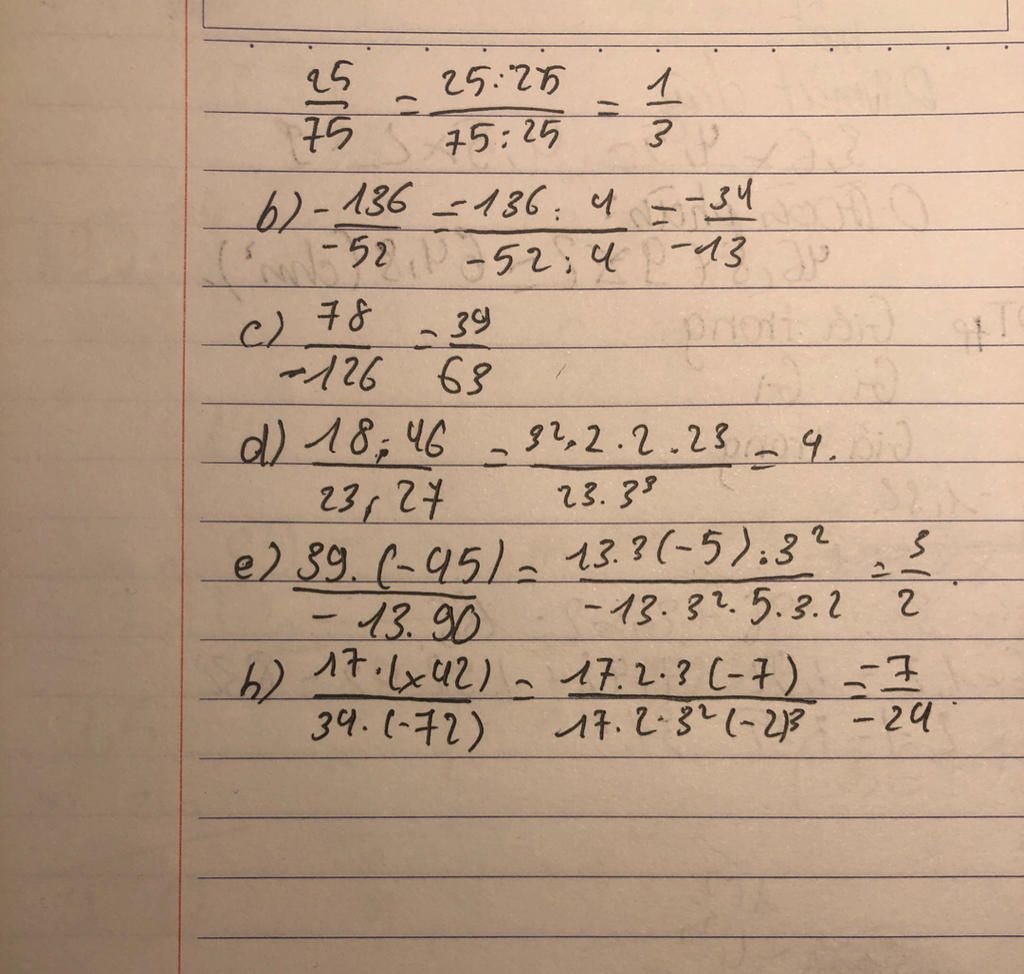 25/75 = 25:25/75:25 = 1/3
b) -136/-52 = -136:4/-52:4 = -34/-13
c) 78/-126 = 39/63
d) 18.46/23.27 = 3².2.2.23/23.3³ = 4.
e) 39.(-45)/-13.90 = 13.3(-5).3²/-13.3².5.3.2 = 3/2.
h) 17.(-42)/34.(-72) = 17.2.3(-7)/17.2.3²(-2)³ = -7/-24.